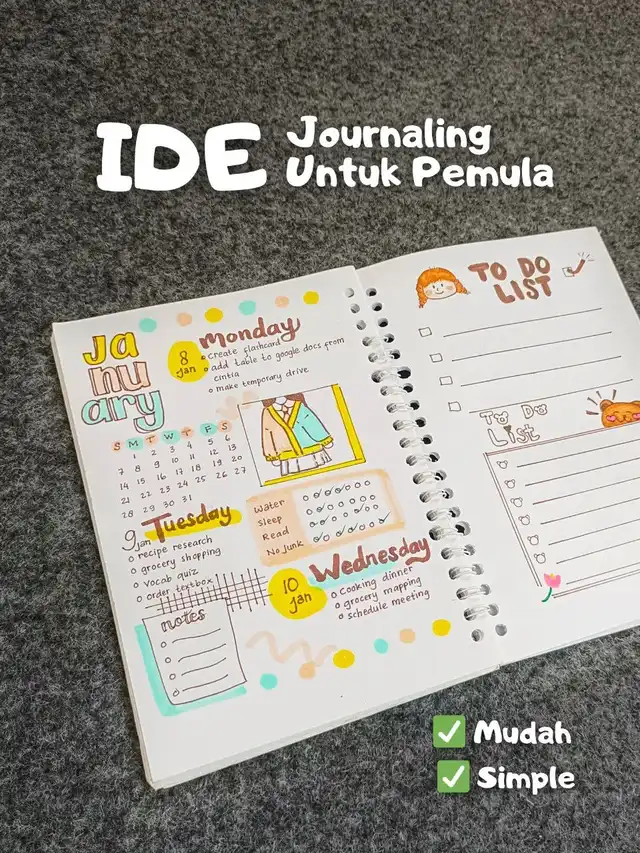 IDE
Journaling
Untuk Pemula
Ja
nu
ary
8
Jan
Monday
create flashcard
add table to google docs from
cintia
make temporary drive
S M T W T F S
1 2 3 4 5 6
7 8 9 10 11 12 13
14 15 16 17 18 19 20
21 22 23 24 25 26 27
28 29 30 31
9
Jan
Tuesday
recipe research
grocery shopping
vocab quiz
order textbox
Water
Sleep
Read
No Junk
10
Jan
Wednesday
cooking dinner
grocery mapping
schedule meeting
notes
TO DO
LIST
To Do
List
✅ Mudah
✅ Simple